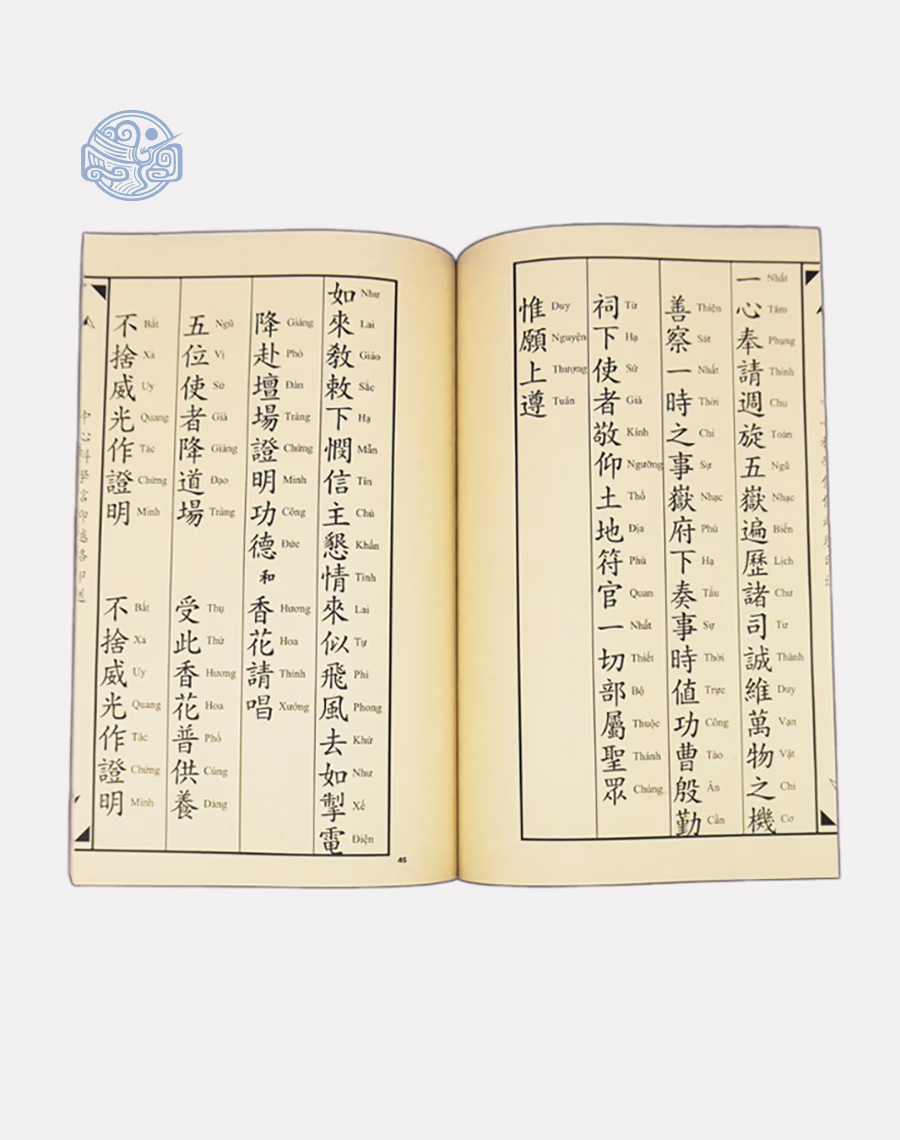 一心奉請週旋五嶽遍歷諸司誠維萬物之機
Nhất Tâm Phụng Thỉnh Chu Toàn Ngũ Nhạc Biến Lịch Chư Tư Thành Duy Vạn Vật Chi Cơ
善察一時之事嶽府下奏事時値功曹殷勤
Thiện Sát Nhất Thời Chi Sự Nhạc Phủ Hạ Tấu Sự Thời Trực Công Tào Ân Cần
祠下使者敬仰土地符官一切部屬聖眾
Từ Hạ Sứ Giả Kính Ngưỡng Thổ Địa Phù Quan Nhất Thiết Bộ Thuộc Thánh Chúng
惟願上遵
Duy Nguyện Thượng Tuân
如來敎敕下憫信主懇情來似飛風去如掣電
Như Lai Giáo Sắc Hạ Mẫn Tín Chủ Khẩn Tình Lai Tự Phi Phong Khứ Như Xế Điện
降赴壇場證明功德 和 香花請唱
Giáng Phó Đàn Tràng Chứng Minh Công Đức Hương Hoa Thỉnh Xướng
五位使者降道場 受此香花普供養
Ngũ Vị Sứ Giả Giáng Đạo Tràng Thụ Thử Hương Hoa Phổ Cúng Dàng
不捨威光作證明 不捨威光作證明
Bất Xả Uy Quang Tác Chứng Minh Bất Xả Uy Quang Tác Chứng Minh
45